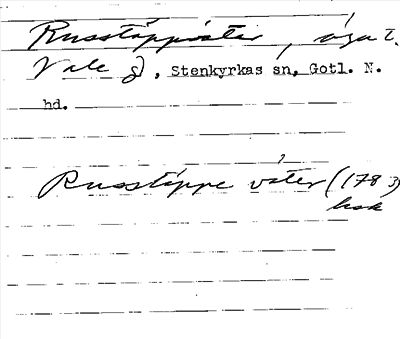 Russtäppvätar, äga t.
Vale gd, Stenkyrkas sn, Gotl. N.
hd.
Russtäppe väter (1783)
hsk